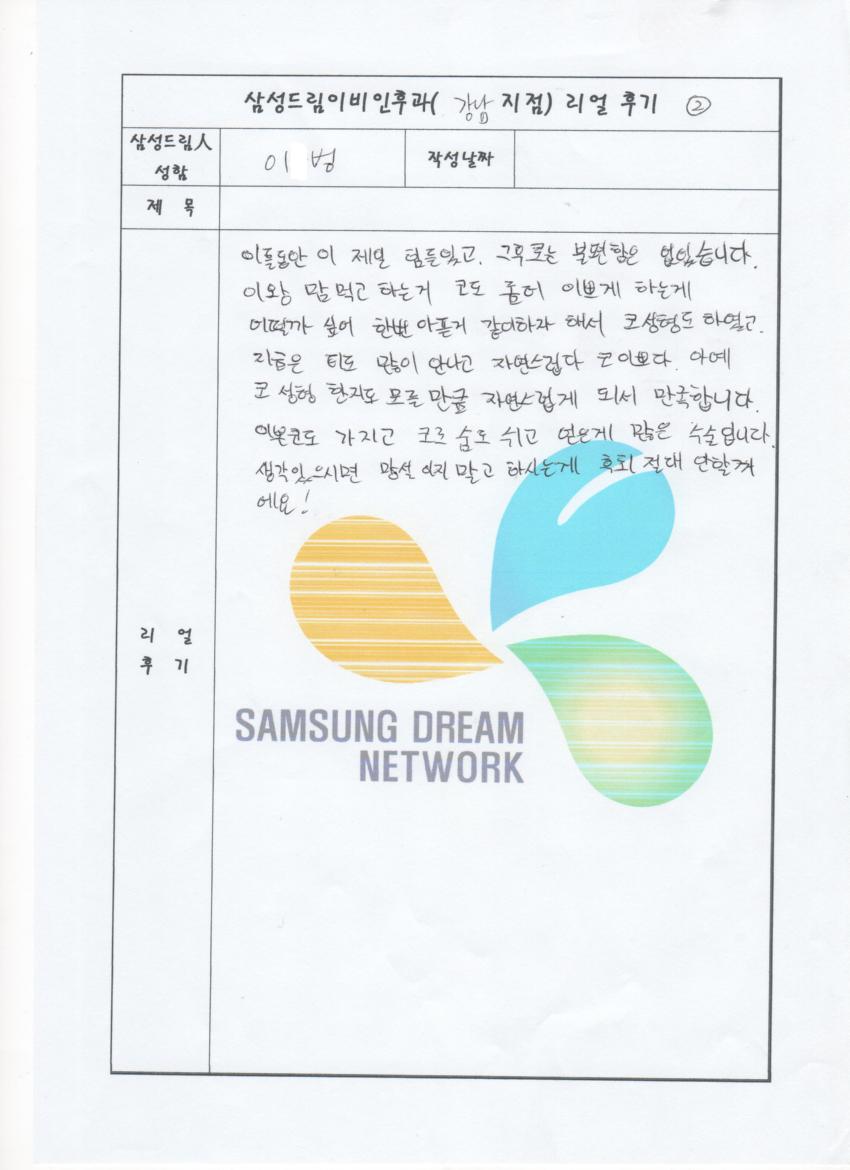 삼성드림이비인후과( 강남 지점) 리얼 후기 ②
삼성드림人
성함
이 병
작성날짜
제 목
이틀동안 이 제일 힘들었고. 그후로는 불편함은 없었습니다.
이왕 맘먹고 하는거 코도 높여 이쁘게 하는게
어떨까 싶어 한번 아픈거 같이하자 해서 코성형도 하였고.
지금은 티도 많이 안나고 자연스럽다 코이쁘다. 아예
코 성형 한지도 모를 만큼 자연스럽게 되서 만족합니다.
이쁜코도 가지고 코로 숨도 쉬고 얻은게 많은 수술입니다.
생각있으시면 망설 이지 말고 하시는게 후회 절대 안할꺼
에요!
리 얼
후 기
SAMSUNG DREAM
NETWORK